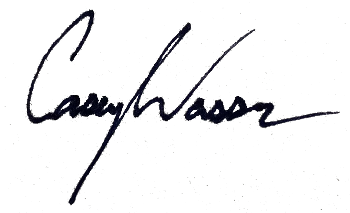 Casey Wasser